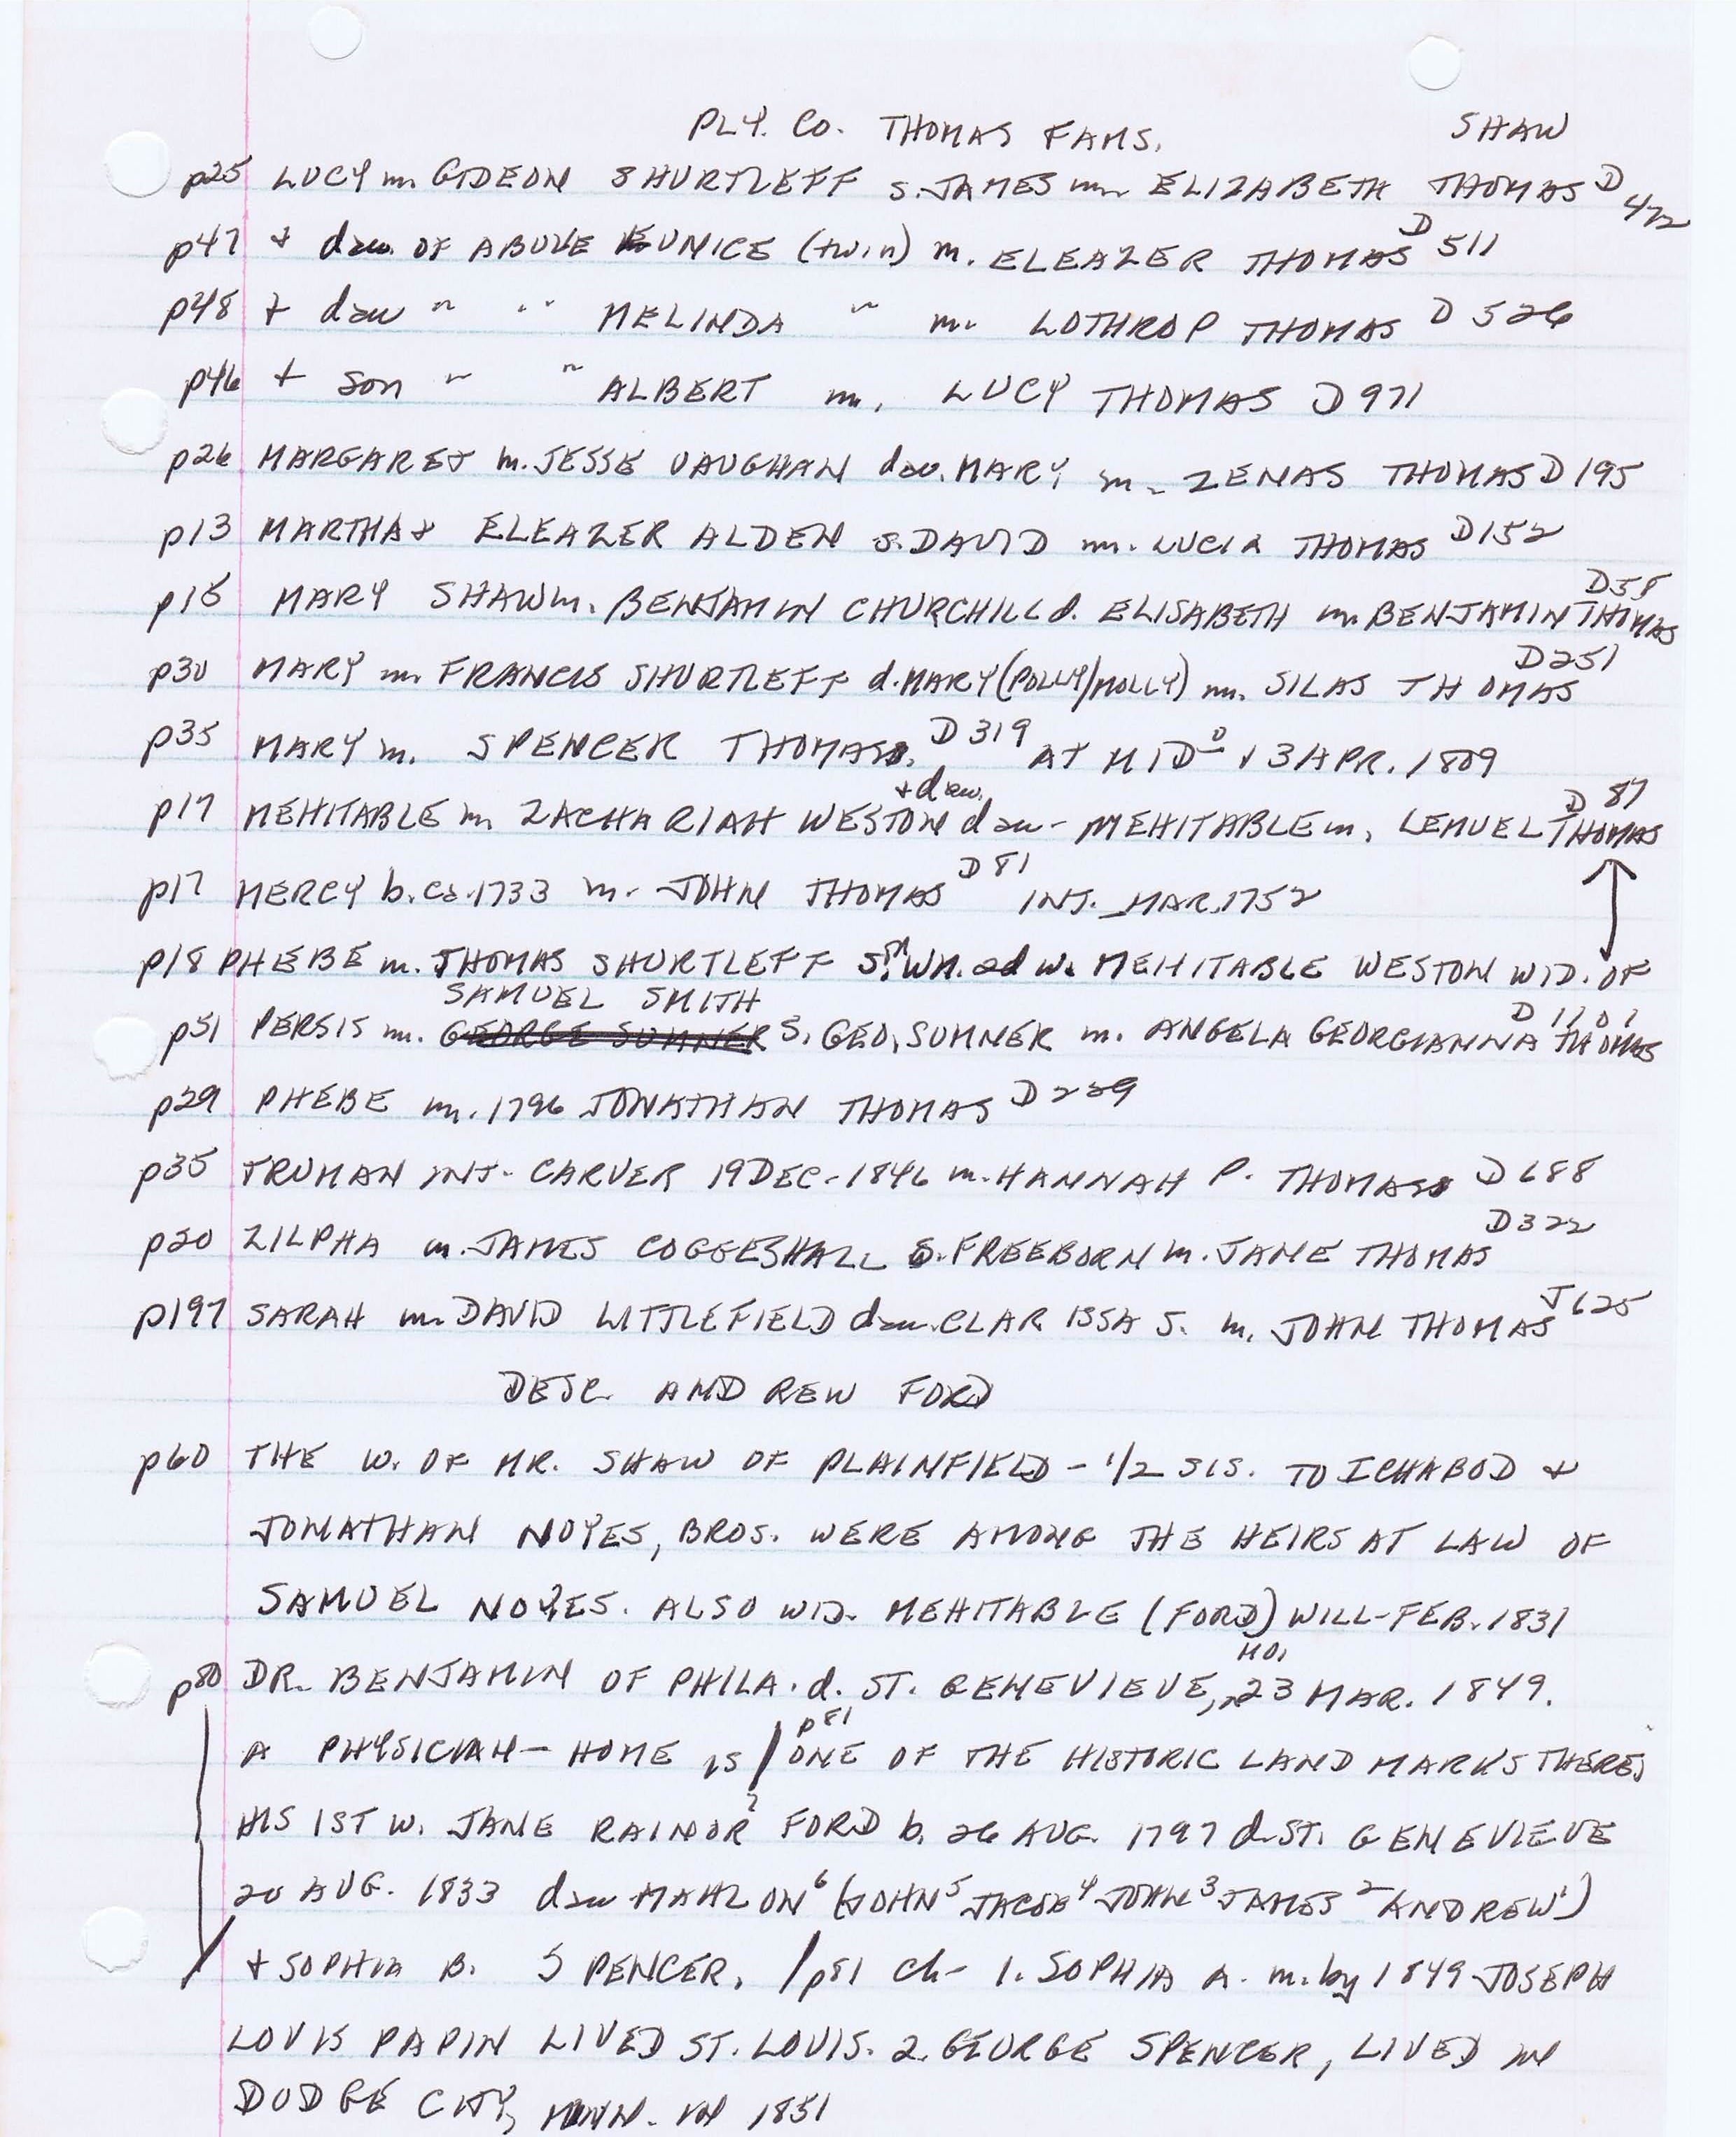 PLY. CO. THOMAS FAMS. SHAW
p25 LUCY m. GIDEON SHURTLEFF s. JAMES m. ELIZABETH THOMAS D 422
p47 + dau. OF ABOVE EUNICE (twin) m. ELEAZER THOMAS D 511
p48 + dau " " MELINDA " m. LOTHROP THOMAS D 526
p46 + son " " ALBERT m. LUCY THOMAS D 971
p26 MARGARET m. JESSE VAUGHAN dau. MARY m. ZENAS THOMAS D 195
p13 MARTHA + ELEAZER ALDEN s. DAVID m. LUCIA THOMAS D152
p15 MARY SHAW m. BENJAMIN CHURCHILL d. ELISABETH m. BENJAMIN THOMAS D58
p30 MARY m. FRANCIS SHURTLEFF d. MARY (POLLY/MOLLY) m. SILAS THOMAS D251
p35 MARY m. SPENCER THOMAS. D 319 AT MIDD 13 APR. 1809
p17 MEHITABLE m. ZACHARIAH WESTON +dau. dau- MEHITABLE m. LEMUEL THOMAS D 87
p17 MERCY b. ca. 1733 m. JOHN THOMAS D 81 INT. MAR. 1752
p18 PHEBE m. THOMAS SHURTLEFF WM. 2d w. MEHITABLE WESTON WID. OF
SAMUEL SMITH
p51 PERSIS m. GEORGE SUMNER S. GEO. SUMNER m. ANGELA GEORGIANNA THOMAS D
p29 PHEBE m. 1796 JONATHAN THOMAS D 229
p35 TRUMAN INT- CARVER 19 DEC- 1846 m. HANNAH P. THOMAS D 688
p20 ZILPHA m. JAMES COGGESHALL S. FREEBORN m. JANE THOMAS D322
p197 SARAH m. DAVID LITTLEFIELD dau. CLARISSA S. m. JOHN THOMAS J625
DESC. ANDREW FORD
p60 THE W. OF MR. SHAW OF PLAINFIELD - 1/2 SIS. TO ICHABOD +
JONATHAN NOYES, BROS. WERE AMONG THE HEIRS AT LAW OF
SAMUEL NOYES. ALSO WID. MEHITABLE (FORD) WILL-FEB. 1831
p80 DR. BENJAMIN OF PHILA. d. ST. GENEVIEVE, MO, 23 MAR. 1849.
A PHYSICIAN - HOME IS / p81 ONE OF THE HISTORIC LAND MARKS THERE,
HIS 1ST W. JANE RAINOR ? FORD b. 26 AUG. 1797 d. ST. GENEVIEVE
20 AUG. 1833 dau MAHLON 6 (JOHN 5 JACOB 4 JOHN 3 JAMES 2 ANDREW 1)
+ SOPHIA B. SPENCER. / p81 ch- 1. SOPHIA A. m. by 1849 JOSEPH
LOUIS PAPIN LIVED ST. LOUIS. 2. GEORGE SPENCER, LIVED IN
DODGE CITY, MINN. IN 1851